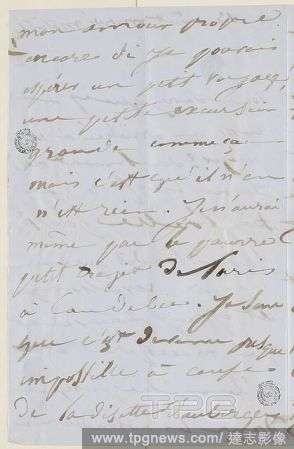 mon amour propre
encore si je pouvais
espérer un petit voyage,
une petite excursion
grande comme ça
mais c'est qu'il n'en
n'est rien. Je n'aurai
même pas le pauvre
petit trajet de Paris
à Caudebec. Je sens
que c'est devenu presque
impossible à cause
de la disette d'auberges
TPG
www.tpgnews.com / 達志影像